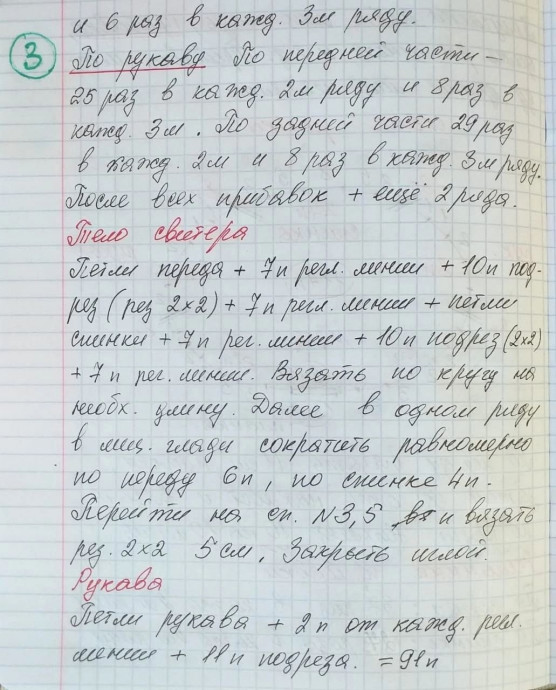 и 6 раз в кажд. 3м ряду.
3
По рукаву По передней части –
25 раз в кажд. 2м ряду и 8 раз в
кажд. 3м. По задней части 29 раз
в кажд. 2м и 8 раз в кажд. 3м ряду.
После всех прибавок + ещё 2 ряда.
Тело свитера
Петли переда + 7п регл. линии + 10п под-
рез (рез 2×2) + 7п регл. линии + петли
спинки + 7п рег. линии + 10п подрез (2×2)
+ 7п рег. линии. Вязать по кругу на
необх. длину. Далее в одном ряду
в лиц. глади сократить равномерно
по переду 6п, по спинке 4п.
Перейти на сп. N3,5 и вязать
рез. 2×2 5 см, Закрыть иглой.
Рукава
Петли рукава + 2п от кажд. регл.
линии + 11п подреза. = 91п